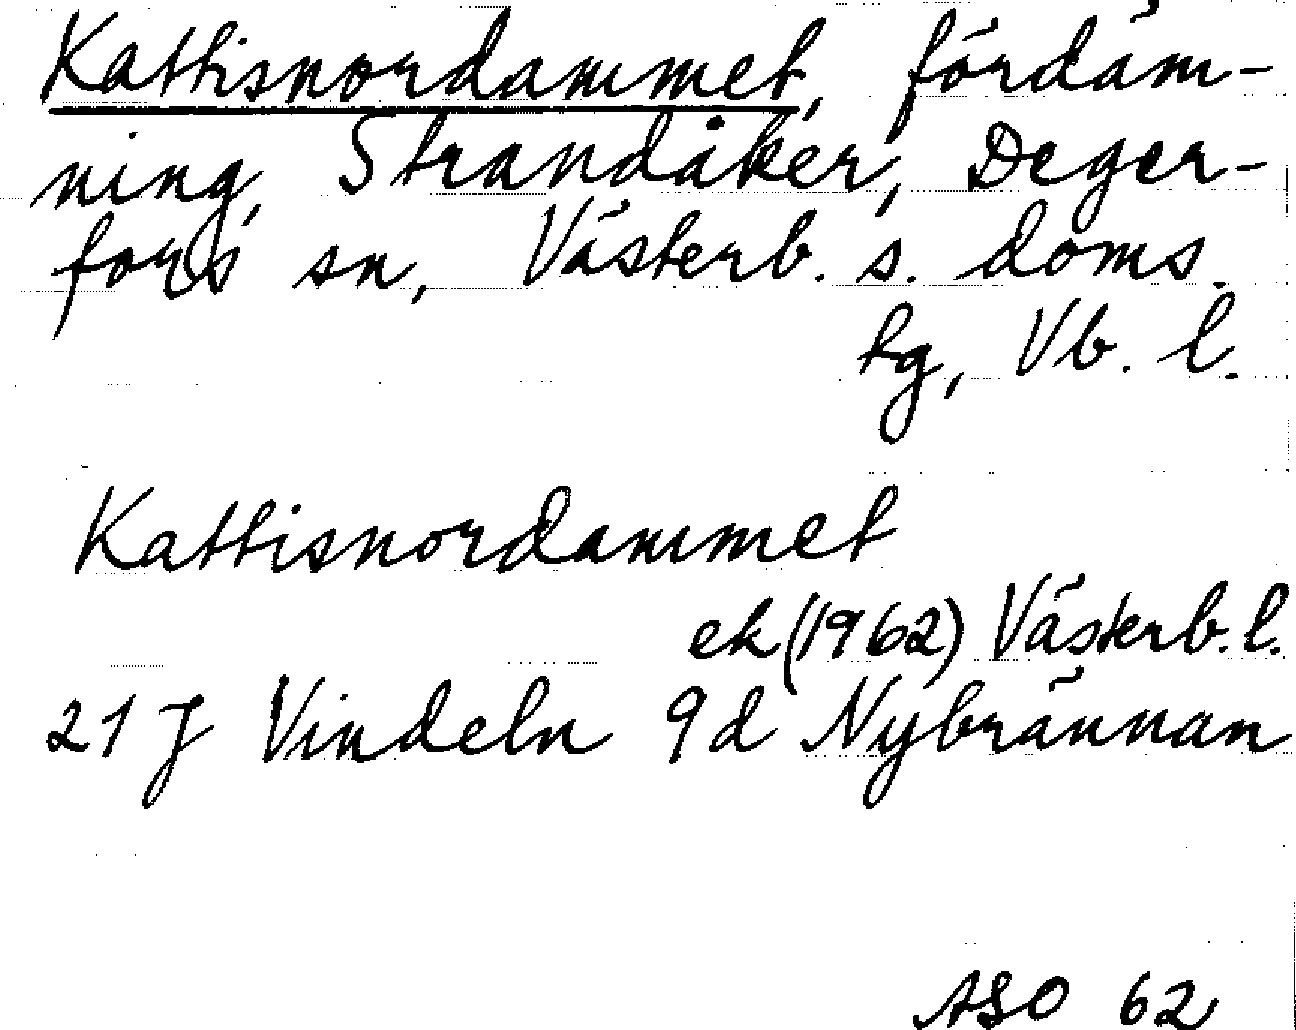 Kattisnordammet, fördäm-
ning, Strandåker, Deger-
fors sn, Västerb. s. doms.
hg, Vb. l.
Kattisnordammet
ek (1962) Västerb. l.
21 J Vindeln 9d Nybrännan
ASO 62